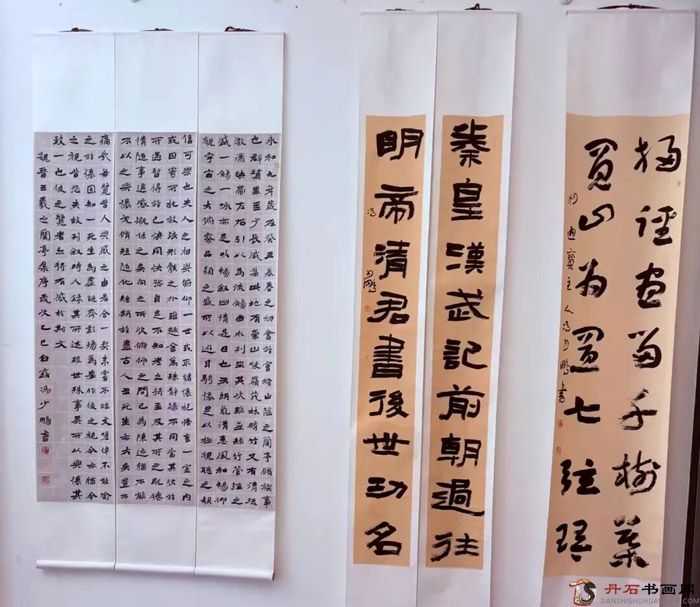 掃逕宜留千樹葉
買山为置七弦琴
主人冯少鹏書
秦皇漢武記前朝過往
明帝清君書後世功名
冯少鹏
永和九年歲在癸丑暮春之初會於會稽山陰之蘭亭脩稧事
也群賢畢至少長咸集此地有崇山峻嶺茂林脩竹又有清流
激湍映帶左右引以為流觴曲水列坐其次雖無絲竹管弦之
盛一觴一詠亦足以暢敘幽情是日也天朗氣清惠風和暢仰
觀宇宙之大俯察品類之盛所以遊目騁懷足以極視聽之娛
信可樂也夫人之相與俯仰一世或取諸懷抱悟言一室之內
或因寄所託放浪形骸之外雖趣舍萬殊靜躁不同當其欣於
所遇暫得於己快然自足不知老之將至及其所之既惓
情隨事遷感慨係之矣向之所欣俯仰之間已為陳迹猶不能
不以之興懷況脩短隨化終期於盡古人云死生亦大矣豈不
痛哉每覽昔人興感之由若合一契未嘗不臨文嗟悼不能喻
之於懷固知一死生為虛誕齊彭殤為妄作後之視今亦猶今
之視昔悲夫故列敘時人錄其所述雖世殊事異所以興懷其
致一也後之覽者亦將有感於斯文
觀晉王羲之蘭亭集序歲次乙巳白露馮少鵬書
丹石书画网
DANSHISHUHUA